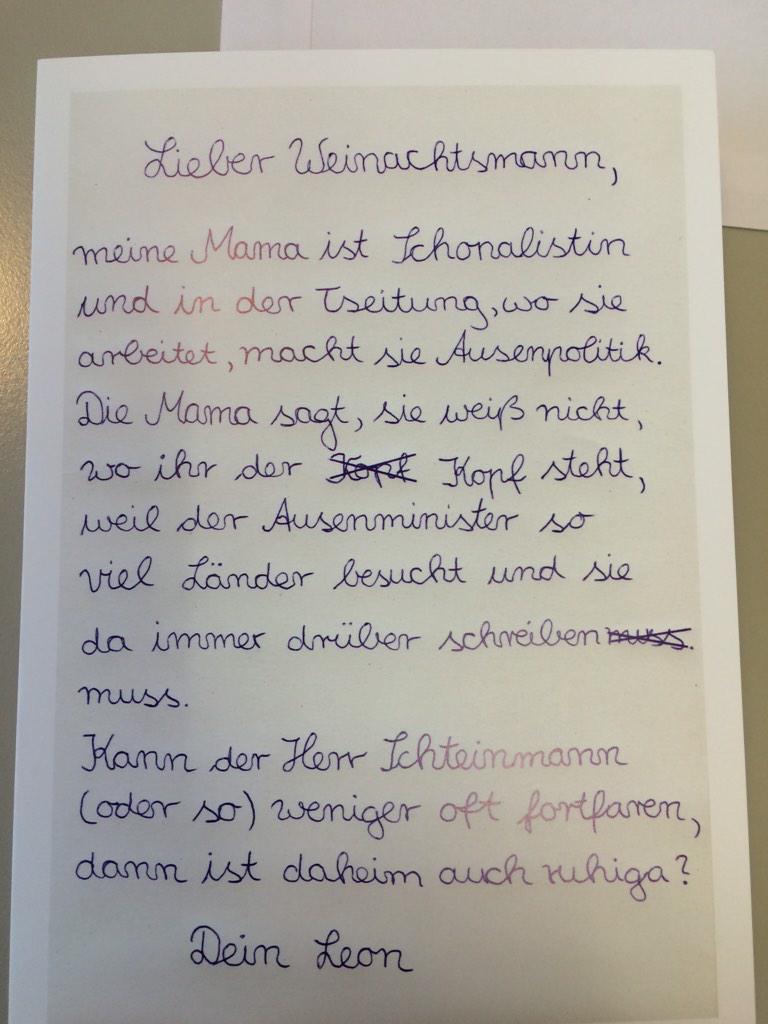 Lieber Weinachtsmann,
meine Mama ist Schonalistin
und in der Tseitung, wo sie
arbeitet, macht sie Ausenpolitik.
Die Mama sagt, sie weiß nicht,
wo ihr der Kopf Kopf steht,
weil der Ausenminister so
viel Länder besucht und sie
da immer drüber schreiben muss.
muss.
Kann der Herr Schteinmann
(oder so) weniger oft fortfaren,
dann ist daheim auch ruhiga?
Dein Leon